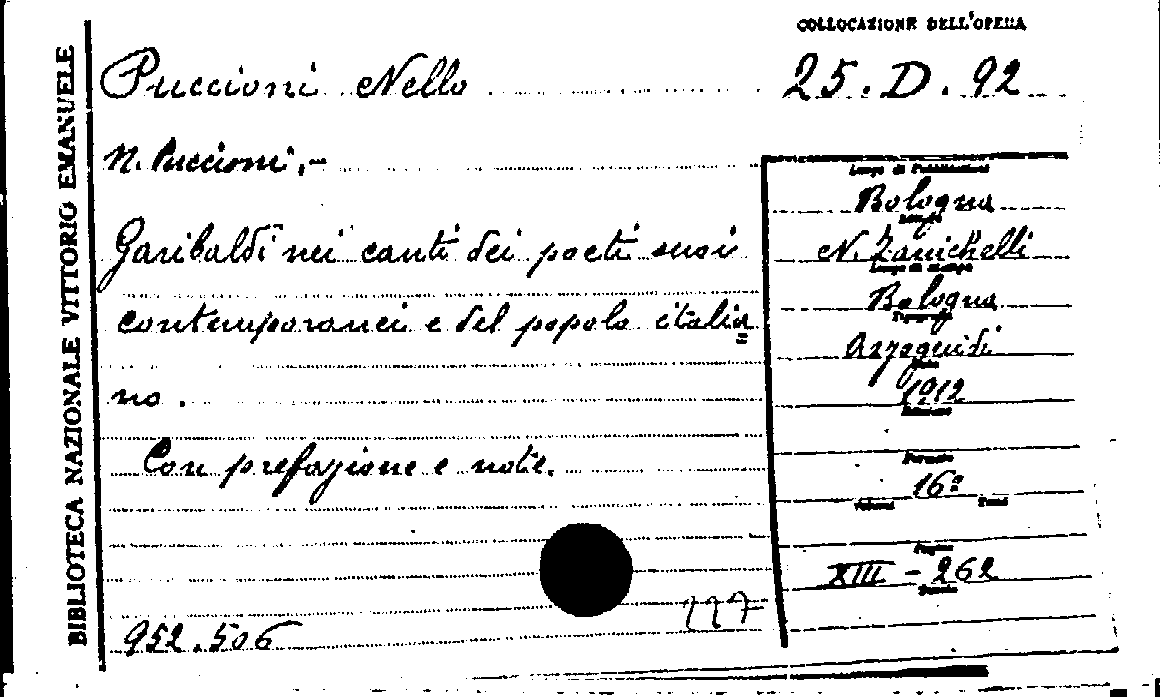 BIBLIOTECA NAZIONALE VITTORIO EMANUELE
COLLOCAZIONE DELL'OPERA
Puccioni Nello
25.D.92
N. Puccioni,-
Garibaldi nei canti dei poeti suoi
contemporanei e del popolo italia=
no.
Con prefazione e note.
Luogo di Pubblicazione
Bologna
N. Zanichelli
Luogo di stampa
Bologna
Tipografia
Azzoguidi
Data
1912
Edizione
Formato
16º
Volumi Tomi
Pagine
XIII - 262
952.506